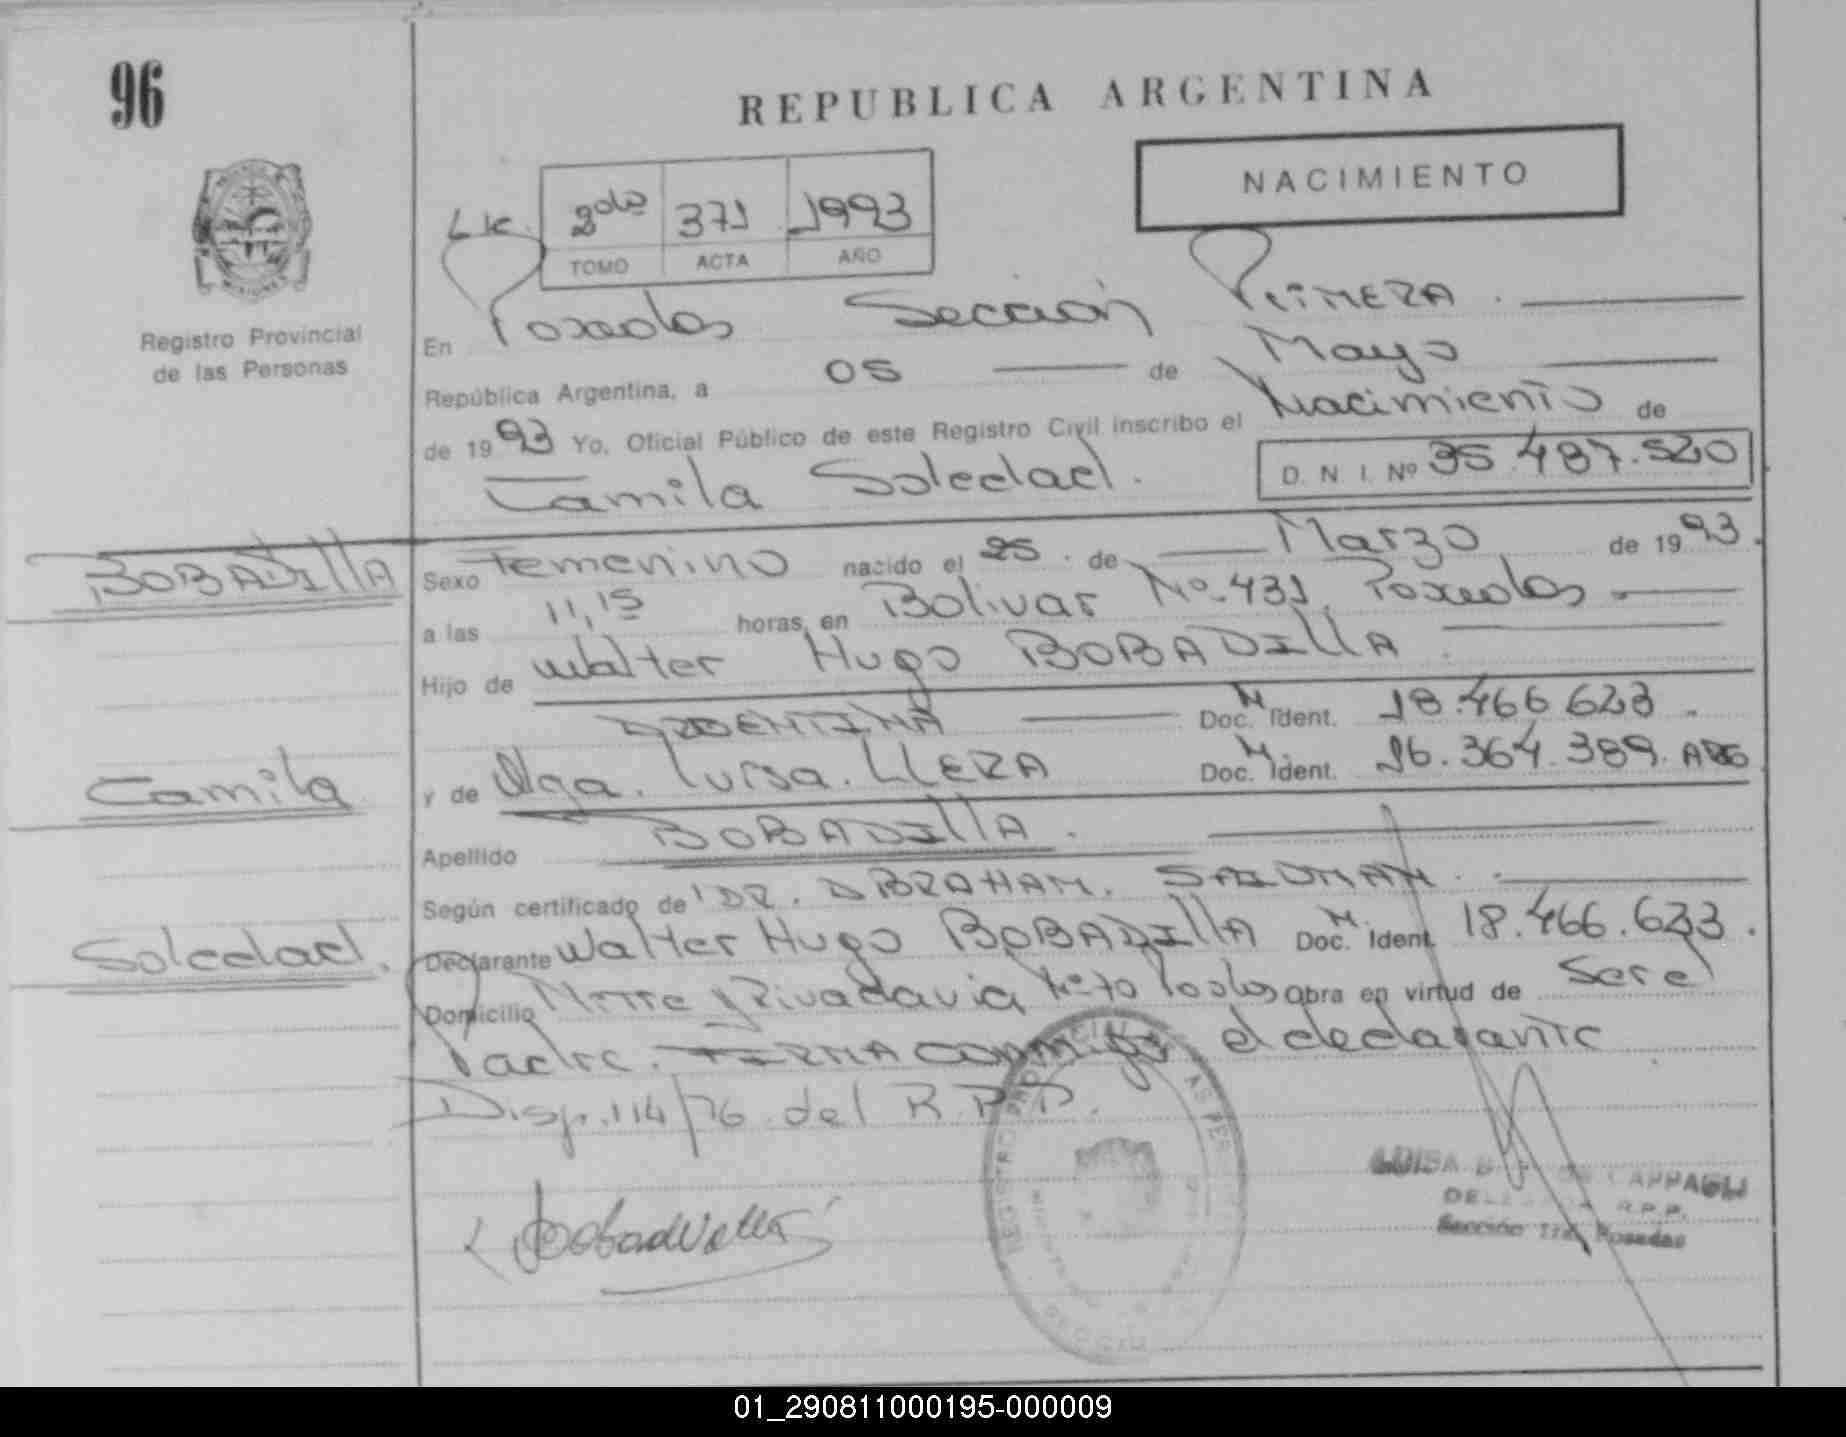 96
REPUBLICA ARGENTINA
NACIMIENTO
2do 371 1993
TOMO ACTA AÑO
Registro Provincial
de las Personas
En Posadas Sección Primera.
República Argentina, a 05 de Mayo
de 1993 Yo, Oficial Público de este Registro Civil inscribo el Nacimiento de
Camila Soledad.
D. N. I. Nº 35.487.520
BOBADILLA
Sexo Femenino nacido el 25. de Marzo de 1993.
a las 11,15 horas, en Bolivar Nº 431, Posadas.
Hijo de Walter Hugo BOBADILLA.
ARGENTINA Doc. M. Ident. 18.466.623.
Camila
y de Olga. Luisa. LLERA Doc. M. Ident. 16.364.389. ARG
Apellido BOBADILLA.
Según certificado de DR. ABRAHAM.
Soledad.
Declarante Walter Hugo BOBADILLA Doc. M. Ident. 18.466.623.
Domicilio Mitre y Rivadavia obra en virtud de Ser el
Padre. FIRMA conmigo el declarante
Disp. 114/76 del R.P.P.
REGISTRO PROVINCIAL DE LAS PER
Sección 1ra. Posadas
01_290811000195-000009